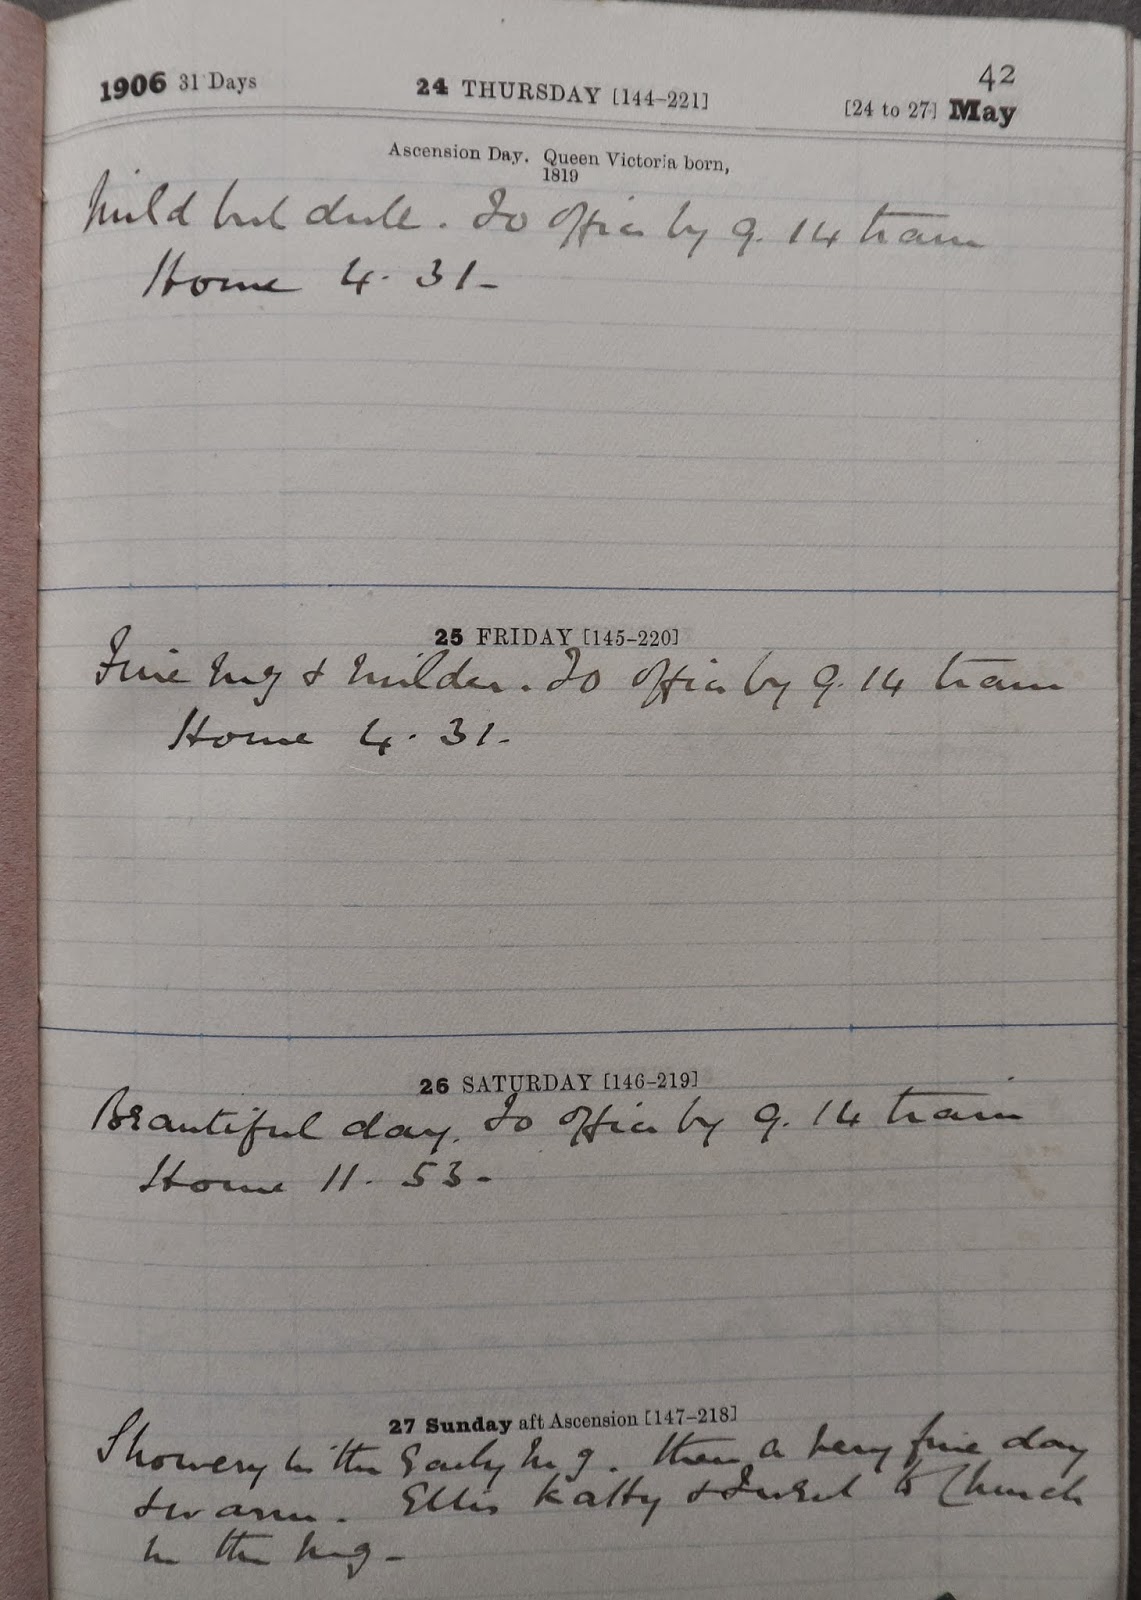 1906 31 Days 24 THURSDAY [144–221] [24 to 27] May
42
Ascension Day. Queen Victoria born,
1819
Mild but dull. To office by 9.14 train
Home 4.31–
25 FRIDAY [145–220]
Fine mg & milder. To office by 9.14 train
Home 4.31–
26 SATURDAY [146–219]
Beautiful day. To office by 9.14 train
Home 11.53–
27 Sunday aft Ascension [147–218]
Showery in the early mg. then a very fine day
& warm. Ellis Katty & to Church
in the mg–